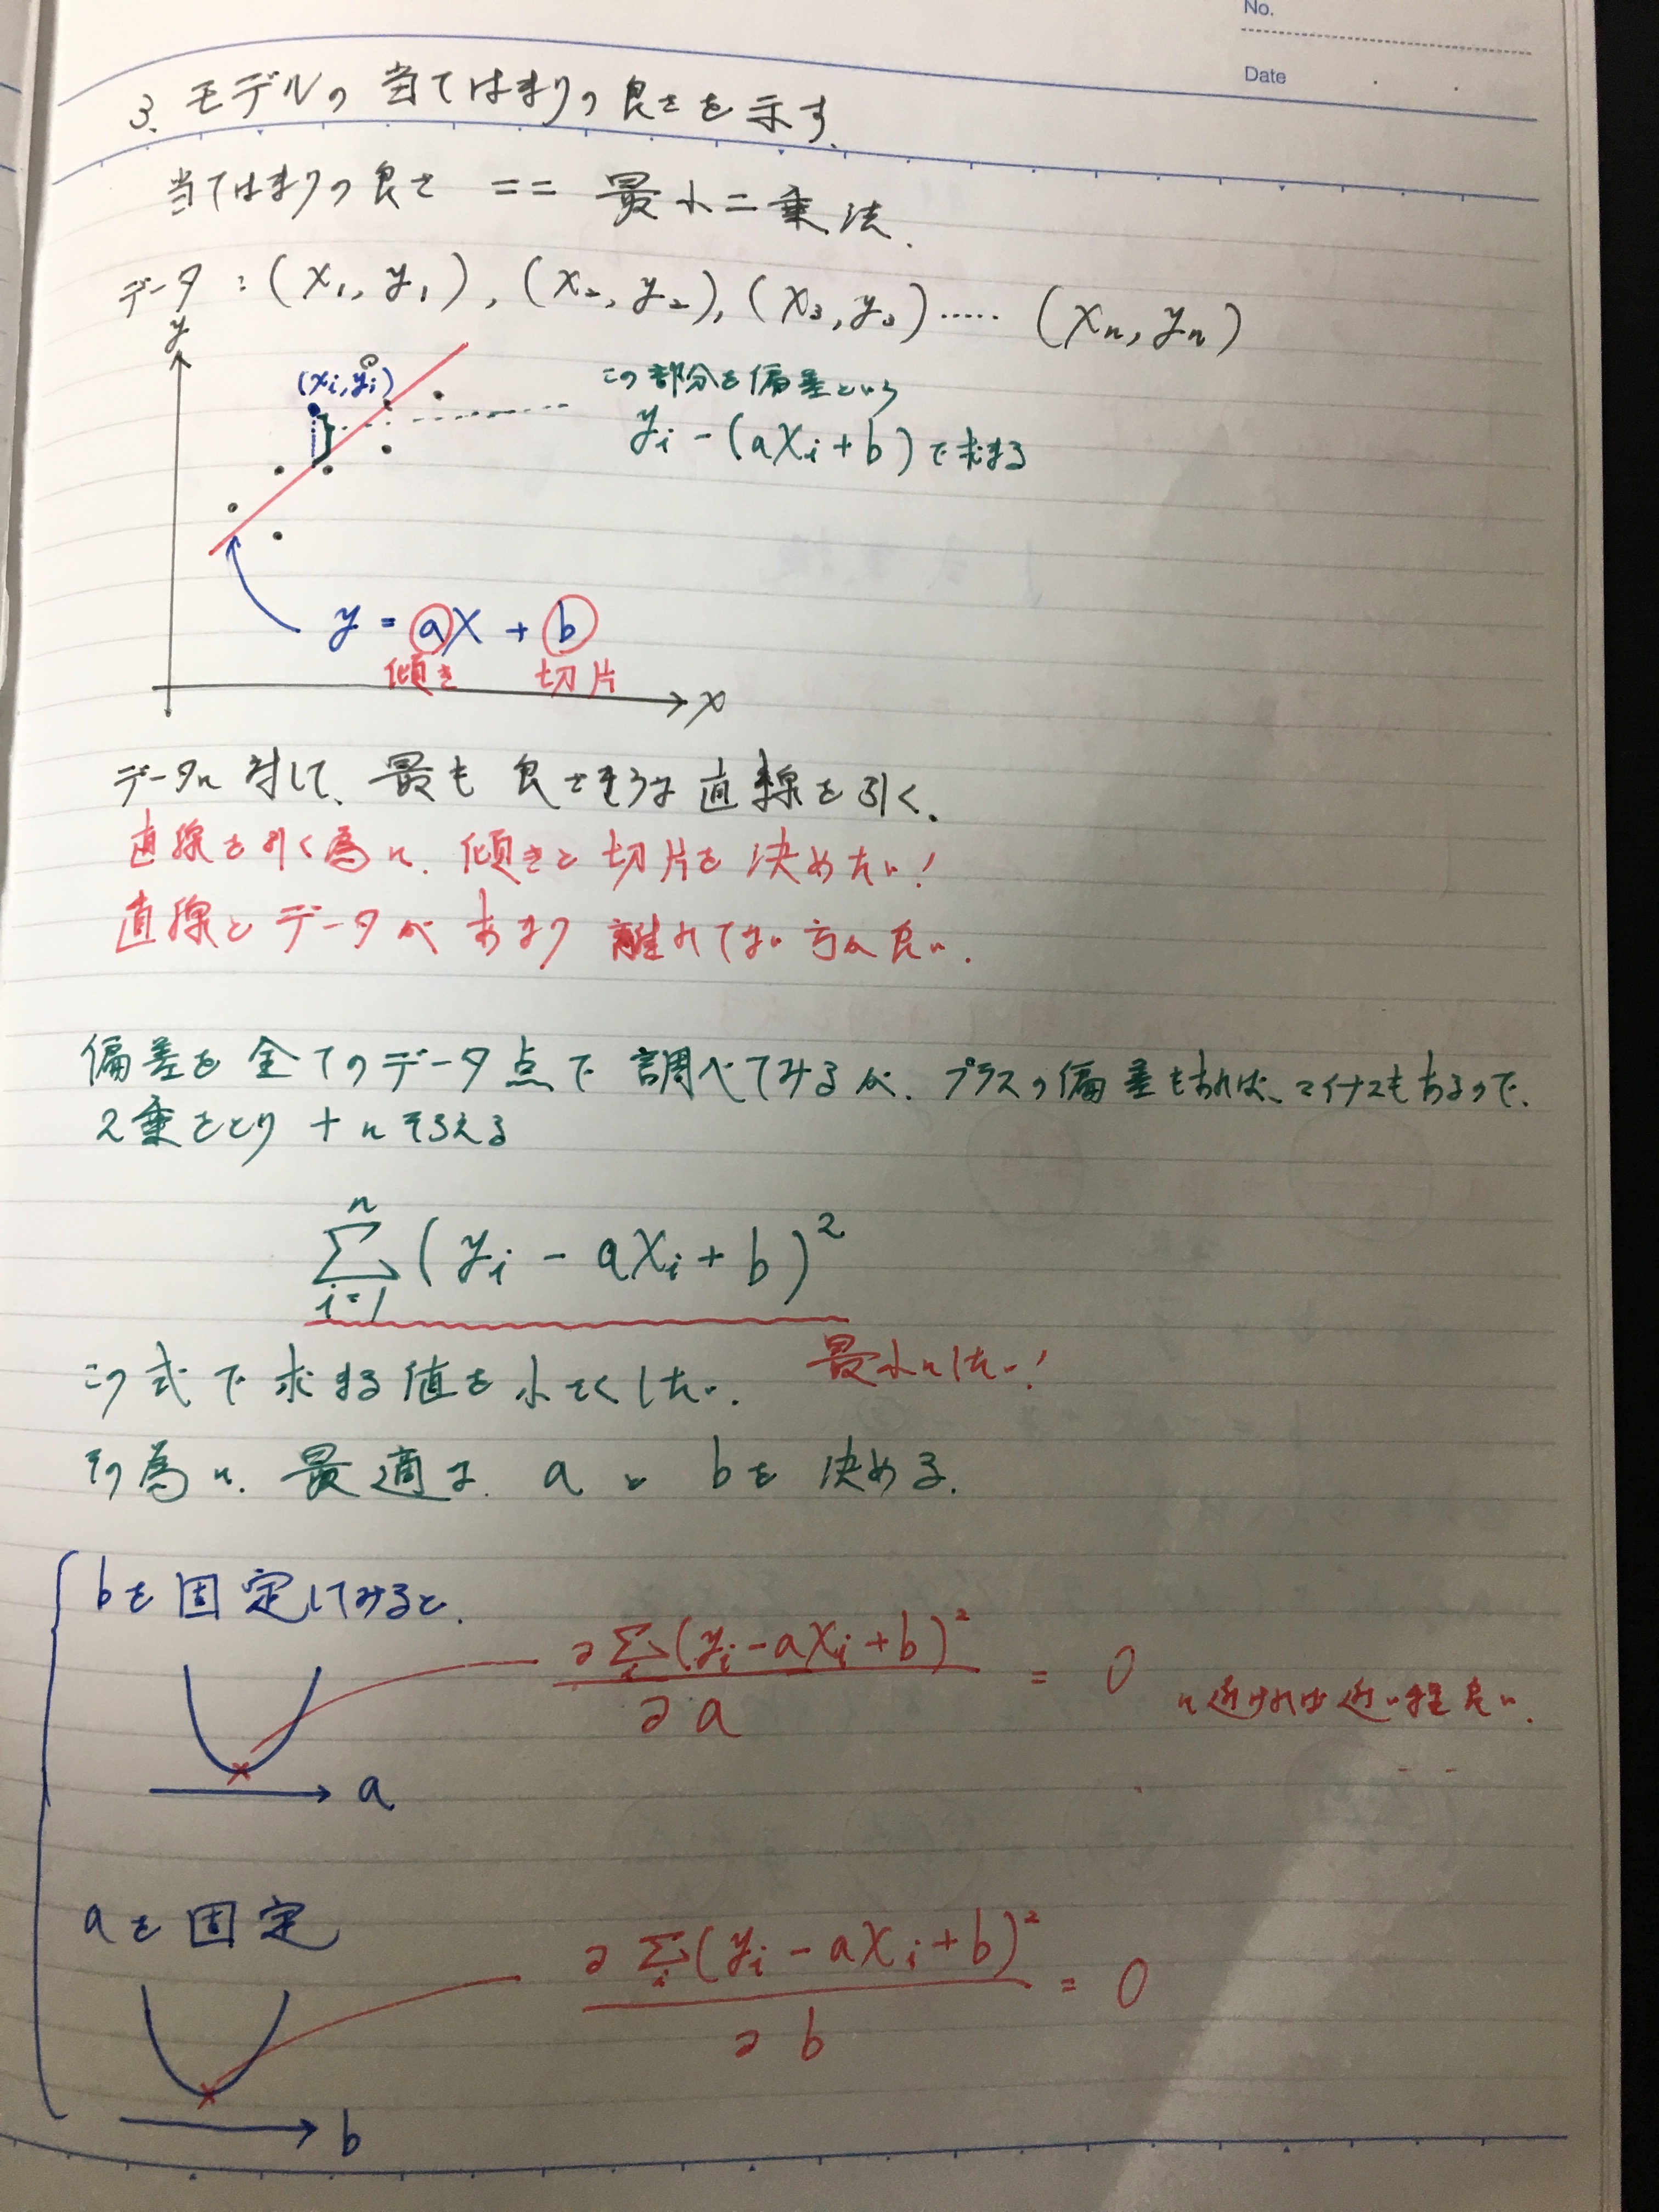 No.
Date
3. モデルの当てはまりの良さを示す、
当てはまりの良さ == 最小二乗法.
データ : (x₁, y₁), (x₂, y₂), (x₃, y₃) ..... (xₙ, yₙ)
y
(xi, yi)
この部分を偏差という
yi - (axi + b) で求まる
y = ax + b
傾き 切片
x
データに対して、最も良さそうな直線を引く、
直線を引く為に、傾きと切片を決めたい!
直線とデータがあまり離れてない方が良い.
偏差を全てのデータ点で調べてみるが、プラスの偏差もあれば、マイナスもあるので、
2乗をとり + にそろえる
n
Σ (yi - axi + b)²
i=1
この式で求まる値を小さくしたい.
最小にしたい!
その為に、最適な a と b を決める.
bを固定してみると.
∂Σi(yi - axi + b)² / ∂a = 0 に近ければ近い程良い.
a
aを固定
∂Σi(yi - axi + b)² / ∂b = 0
b